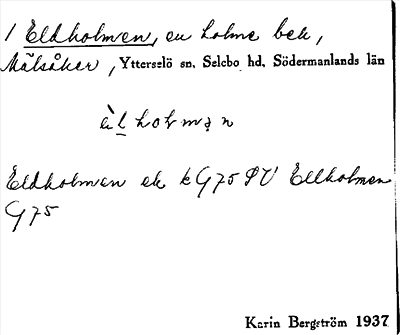 1 Eldholmen, en holme bek,
Mälsåker, Ytterselö sn. Selebo hd. Södermanlands län
Eldholmen ek k G75 SV Ellholmen
G75
Karin Bergström 1937